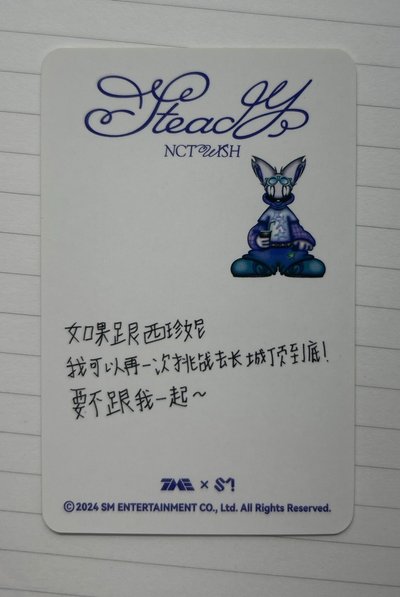 Steady
NCT WISH
如果跟西珍妮
我可以再一次挑战去长城顶到底!
要不跟我一起~
TME × SM
©2024 SM ENTERTAINMENT CO., Ltd. All Rights Reserved.